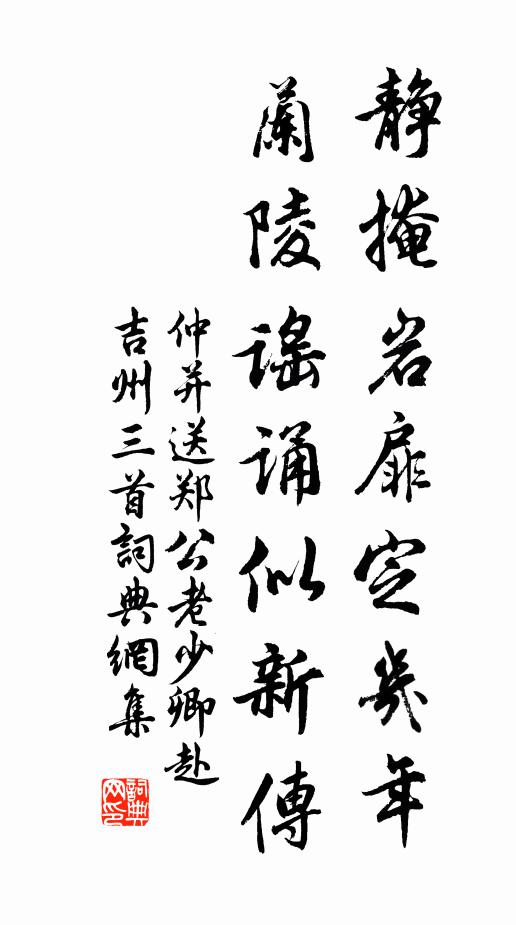 静掩岩扉定幾年
蘭陵謡誦似新傳
仲并送郑公老少卿赴
吉州三首詞典網集
詞典
网印